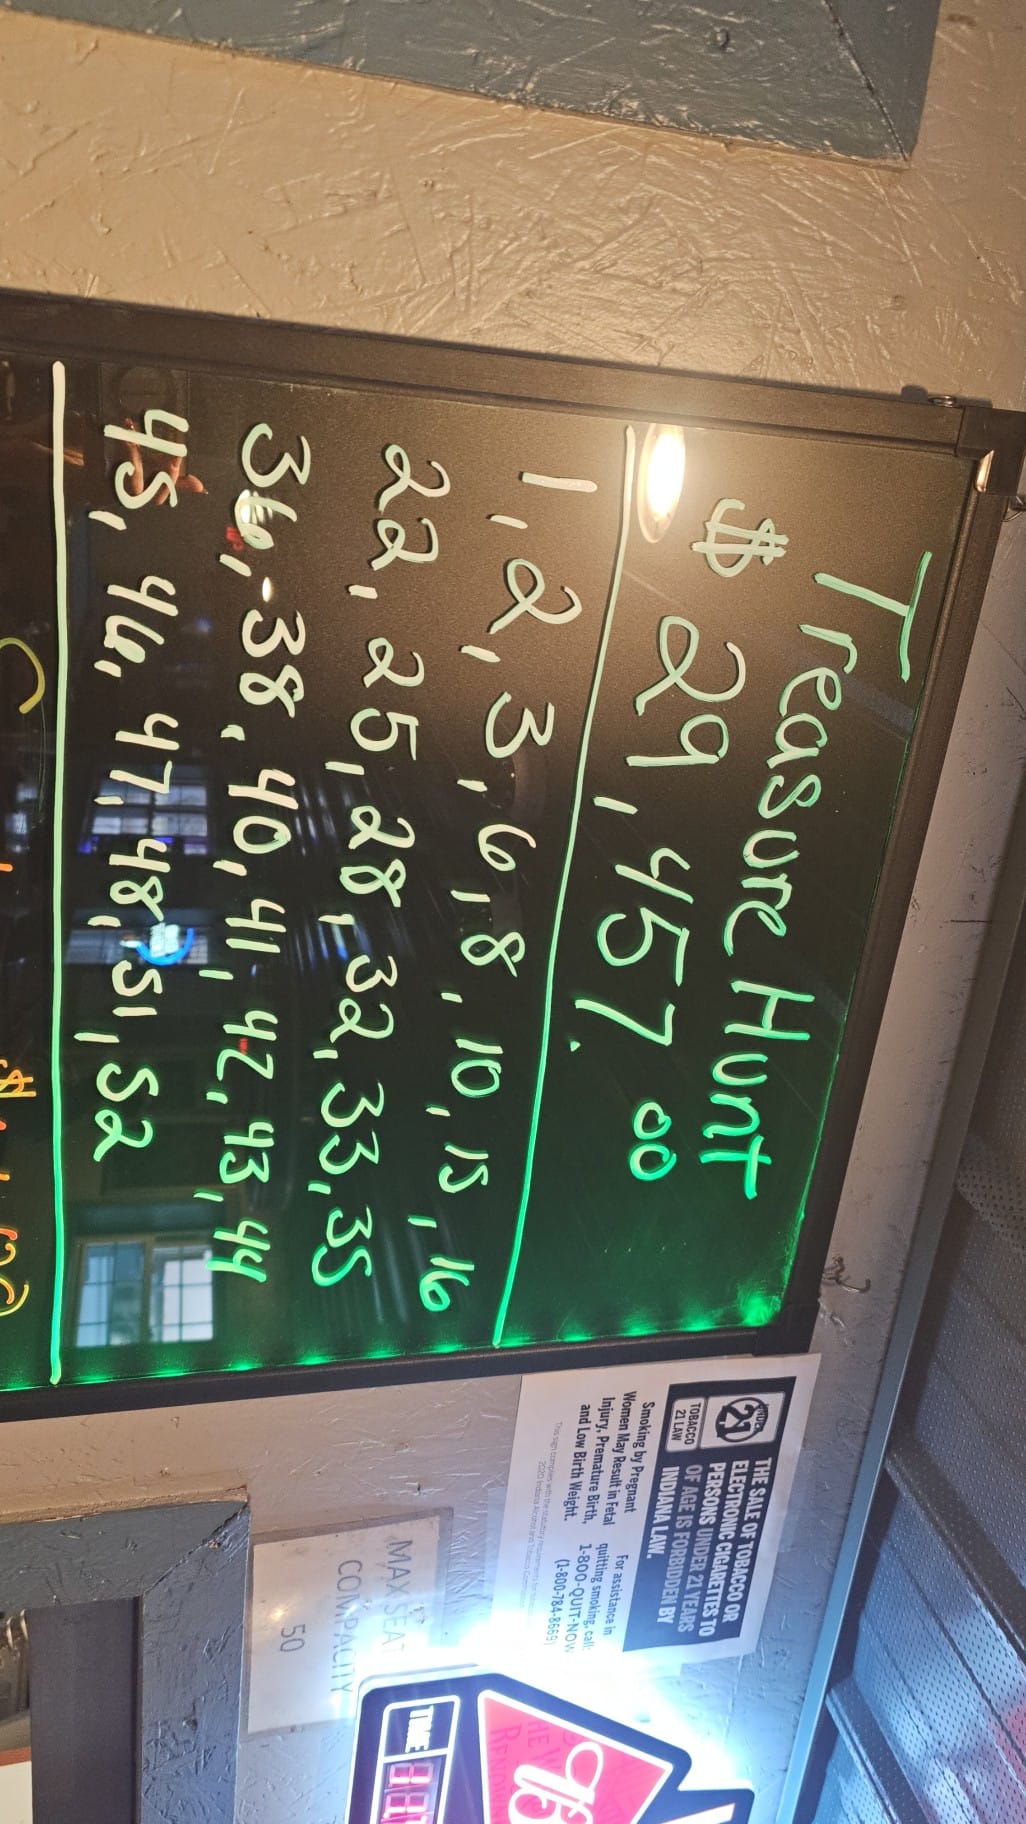 Treasure Hunt
$ 29,457.00
1, 2, 3, 6, 8, 10, 15, 16
22, 25, 28, 32, 33, 35
36, 38, 40, 41, 42, 43, 44
45, 46, 47, 48, 51, 52
UNDER
21
TOBACCO
21 LAW
THE SALE OF TOBACCO OR
ELECTRONIC CIGARETTES TO
PERSONS UNDER 21 YEARS
OF AGE IS FORBIDDEN BY
INDIANA LAW.
Smoking by Pregnant
Women May Result in Fetal
Injury, Premature Birth,
and Low Birth Weight.
For assistance in
quitting smoking, call:
1-800-QUIT-NOW
(1-800-784-8669)
MAX SEAT
COMPACITY
50
TIME